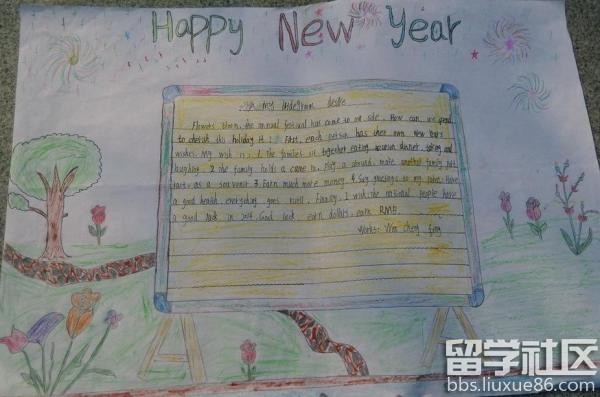 Happy New Year
my desire
Flowers bloom, the annual festival has come to our side. How can we spend
to cherish this holiday it : First, each person has their own new year's
wishes. My wish is: 1. The families sit together eating reunion dinner, talking and
laughing. 2 the family holds a came to, play a around, make another family port
rait, as a souvenir 3 Earn much more money. 4 Say greetings to my . Have
a good health, everything goes well. Finally, I wish the national people have
a good luck in 2014, Good luck, earn dollars, earn RMB.
Works: Cheng
留学社区
bbs.liuxue86.com